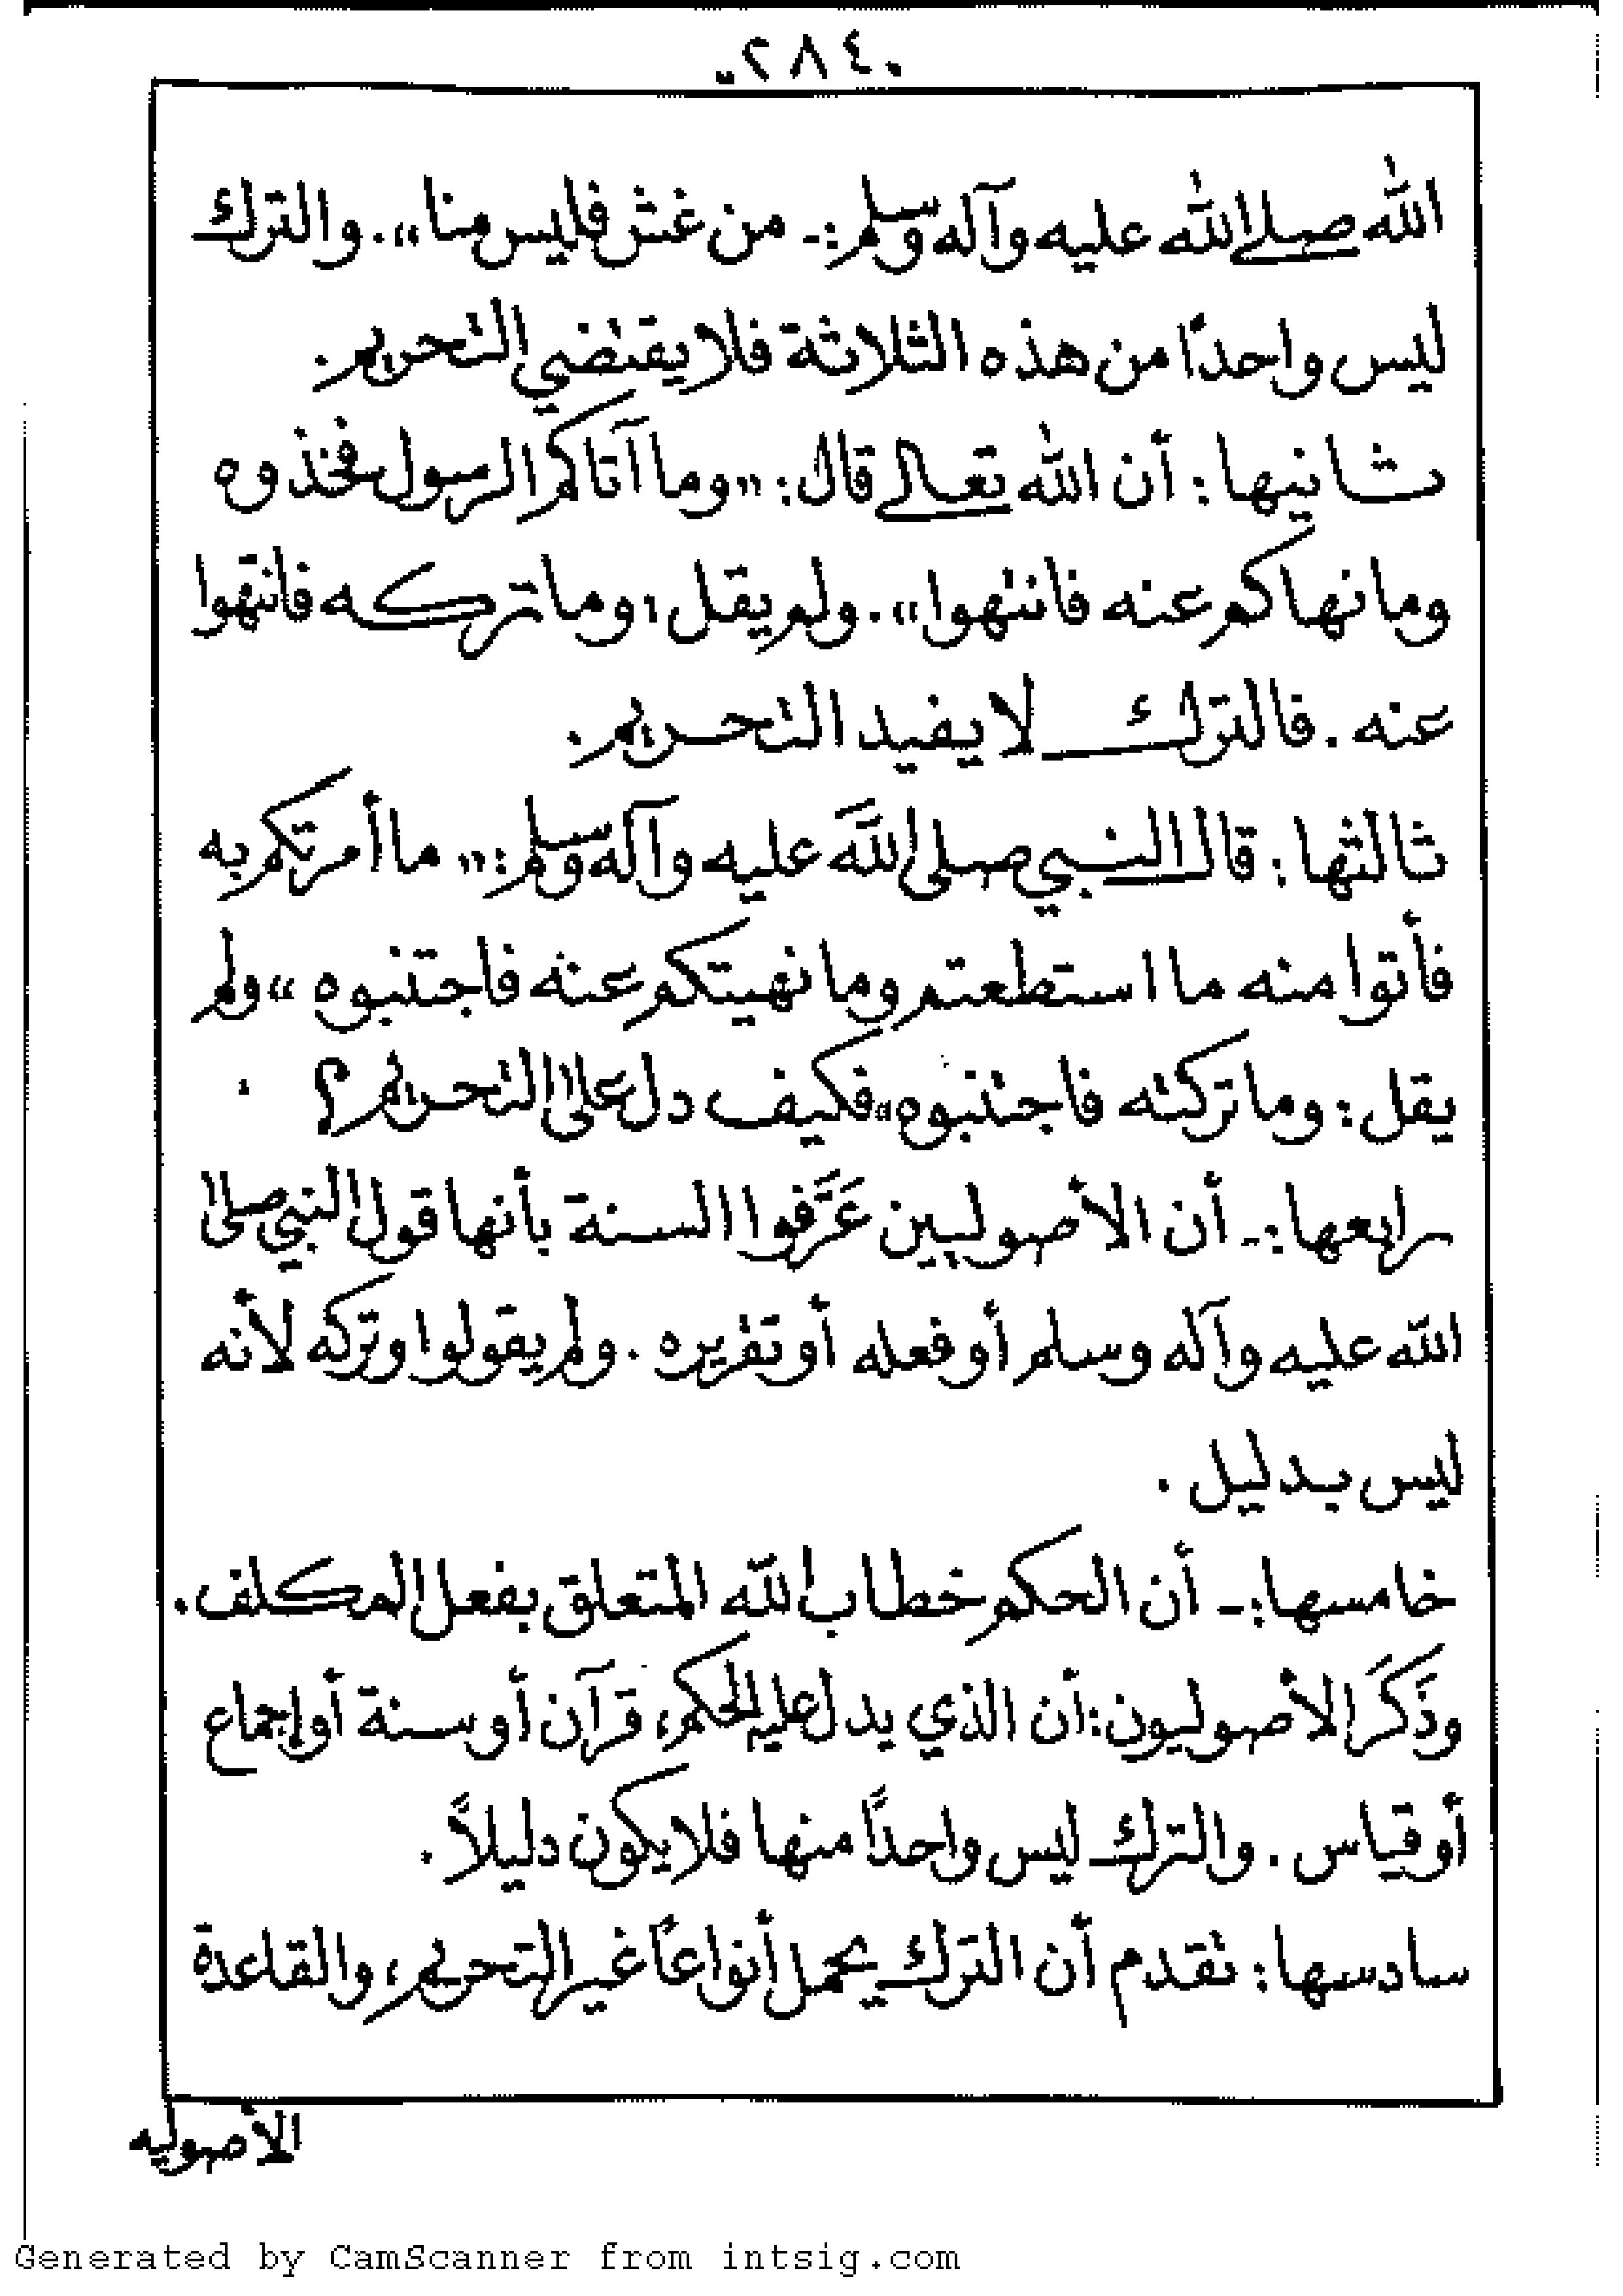 .٢٨٤.
الله صلى الله عليه وآله وسلم:ـ من غش فليس منا». والترك
ليس واحدًا من هذه الثلاثة فلا يقتضي التحريم.
ثانيها: أن الله تعالى قال: «وما آتاكم الرسول فخذوه
وما نهاكم عنه فانتهوا». ولم يقل: وما تركه فانتهوا
عنه. فالترك لا يفيد التحريم.
ثالثها: قال النبي صلى الله عليه وآله وسلم: «ما أمرتكم به
فأتوا منه ما استطعتم وما نهيتكم عنه فاجتنبوه» ولم
يقل: وما تركته فاجتنبوه» فكيف دل على التحريم؟
رابعها:ـ أن الأصوليين عَرَّفوا السنة بأنها قول النبي صلى
الله عليه وآله وسلم أو فعله أو تقريره. ولم يقولوا وتركه لأنه
ليس بدليل.
خامسها:ـ أن الحكم خطاب الله المتعلق بفعل المكلف.
وذَكَرَ الأصوليون: أن الذي يدل عليه الحكم، قرآن أو سنة أو إجماع
أو قياس. والترك ليس واحدًا منها فلا يكون دليلاً.
سادسها: تقدم أن الترك يحمل أنواعًا غير التحريم، والقاعدة
الأصوليه
Generated by CamScanner from intsig.com